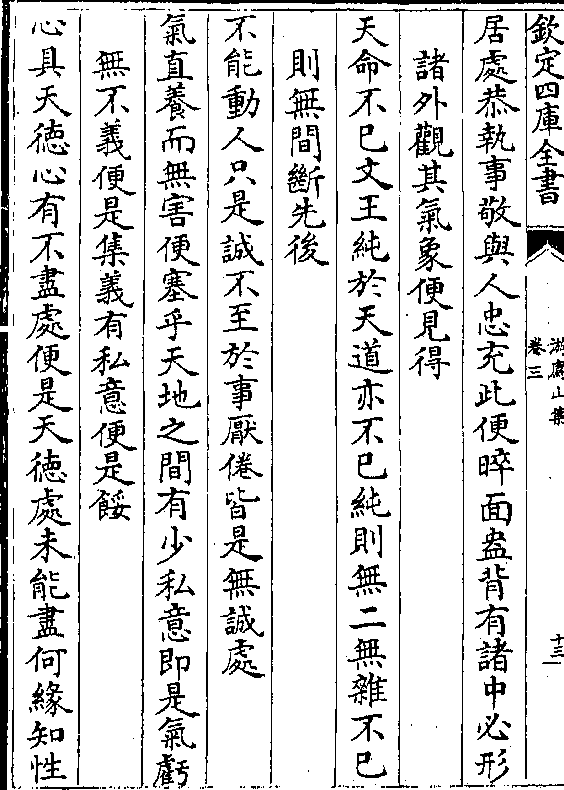 欽定四庫全書
游廌山集
卷三
十三
居處恭執事敬與人忠充此便睟面盎背有諸中必形
諸外觀其氣象便見得
天命不已文王純於天道亦不已純則無二無雜不已
則無間斷先後
不能動人只是誠不至於事厭倦皆是無誠處
氣直養而無害便塞乎天地之間有少私意即是氣虧
無不義便是集義有私意便是餒
心具天徳心有不盡處便是天徳處未能盡何緣知性